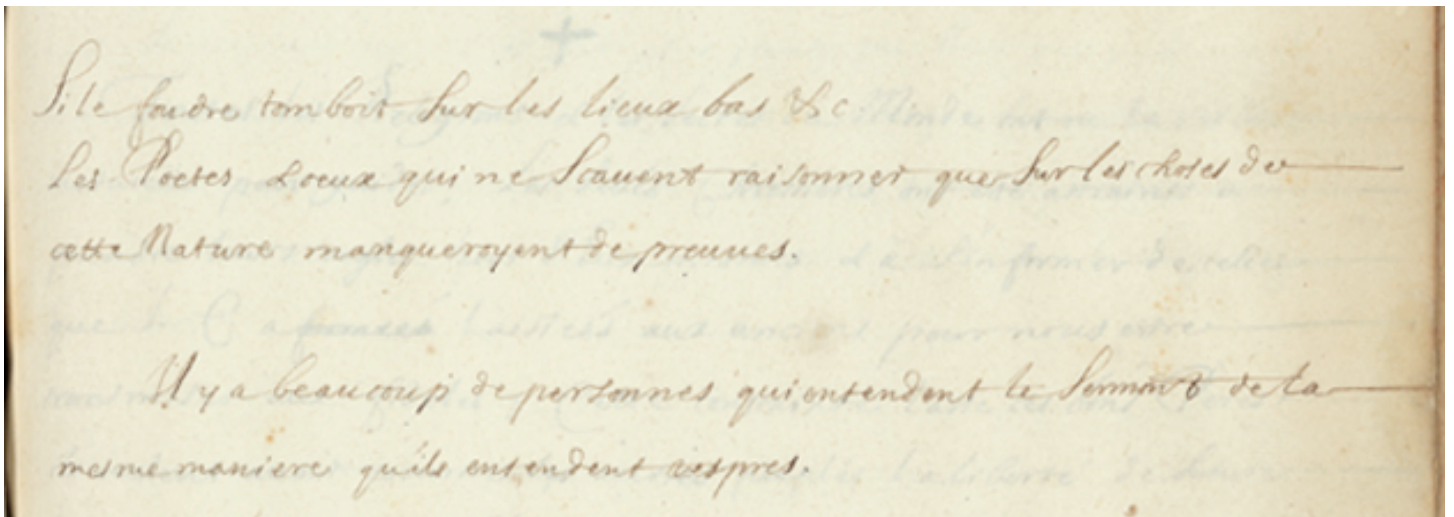 Si le foudre tomboit sur les lieux bas &c
Les Poetes & ceux qui ne scauent raisonner que sur les choses de
cette Nature manqueroyent de preuues.
Il y a beaucoup de personnes qui entendent le Sermon de la
mesme maniere qu'ils entendent vespres.